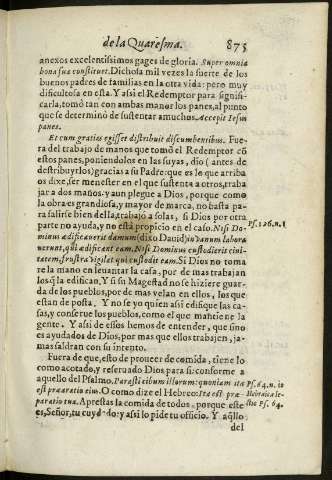 de la Quaresma. 875
anexos excelentissimos gages de gloria. Super omnia
bona sua constituet. Dichosa mil vezes la suerte de los
buenos padres de familias en la otra vida: pero muy
dificultosa en esta. Y assi el Redemptor para signifi-
carla, tomò tan con ambas manos los panes, al punto
que se determinò de sustentar a muchos. Accepit Iesus
panes.
Et cum gratias egisset distribuit discumbentibus. Fue-
ra del trabajo de manos que tomò el Redemptor cō
estos panes, poniendolos en las suyas, dio (antes de
destribuyrlos) gracias a su Padre: que es lo que arriba
os dixe, ser menester en el que sustenta a otros, traba-
jar a dos manos y aun plegue a Dios, porque como
la obra es grandiosa, y mayor de marca, no basta pa-
ra salirse bien della, trabajo a solas, si Dios por otra
parte no ayuda, y no està propicio en el caso. Nisi Do-
Ps. 126. n. 1
minus aedificauerit domum (dixo Dauid) in vanum labora
uerunt, qui aedificant eam. Nisi Dominus custodierit ciui-
tatem, frustra vigilat qui custodit eam. Si Dios no toma
re la mano en leuantar la casa, por de mas trabajan
los q̃ la edifican, Y si su Magestad no se hiziere guar-
da de los pueblos, por de mas velan en ellos, los que
estan de posta. Y no se yo quien assi edifique las ca-
sas, y conserue los pueblos, como el que mantiene la
gente. Y assi de essos hemos de entender, que sino
es ayudados de Dios, por mas que ellos trabajen, ja-
mas saldran con su intento.
Fuera de que, esto de proueer de comida, tiene lo
como acotado, y reseruado Dios para si: conforme a
aquello del Psalmo. Parasti cibum illorum: quoniam ita
Ps. 64. n. 10
est praeparatio eius. O como dize el Hebreo: Ita est prae-
Hebraica le-
paratio tua. Aprestas la comida de todos, porque este
ctio Ps. 64.
es, Señor, tu cuydado: y assi lo pide tu officio. Y aq̃llo
del